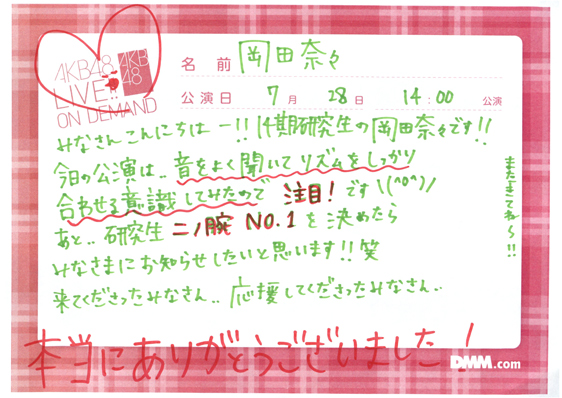 AKB48
LIVE!!
ON DEMAND
AKB
48
名 前 岡田奈々
公演日 7月 28日 14:00 公演
みなさんこんにちはー!!14期研究生の岡田奈々です!!
今日の公演は..音をよく聞いてリズムをしっかり
合わせる意識してみたので 注目!です\(^o^)/
あと..研究生 二ノ腕 NO.1 を決めたら
みなさまにお知らせしたいと思います!!笑
来てくださったみなさん..応援してくださったみなさん..
本当にありがとうございました!
またきてね〜!!
DMM.com